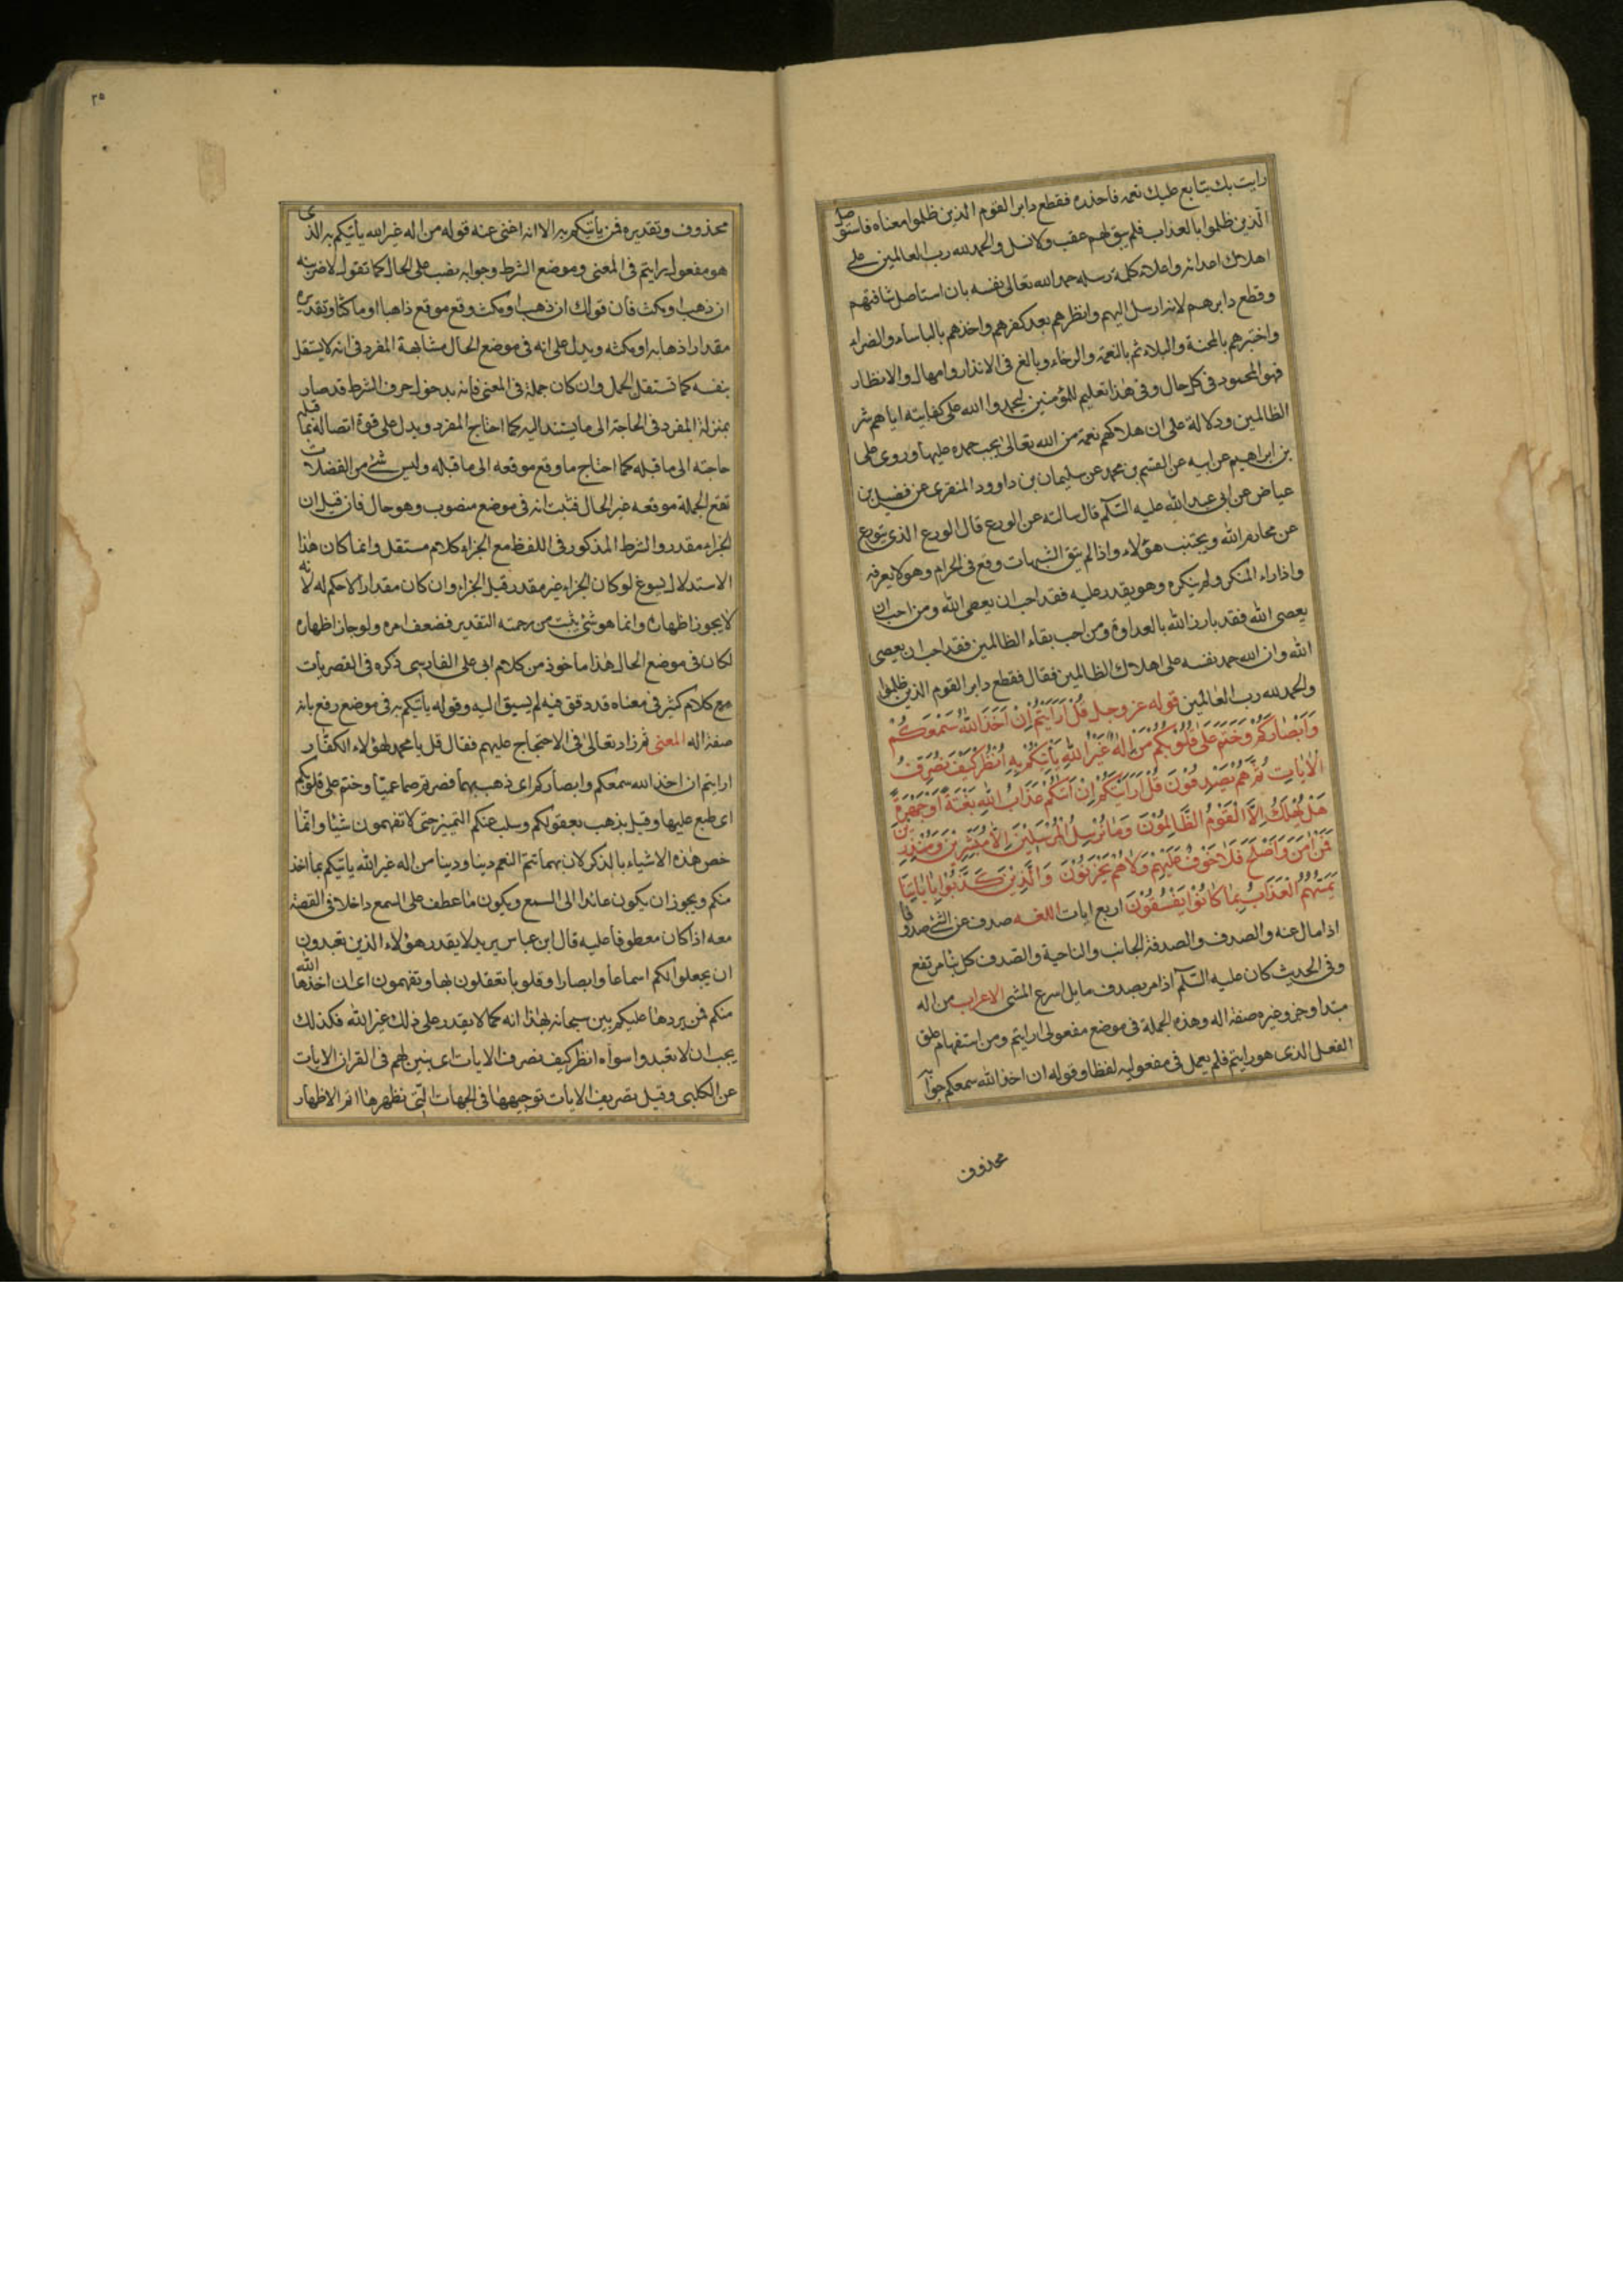 رايت بك يتابع عليك نعمه فاحذره فقطع دابر القوم الذين ظلموا معناه فاستوصل
الذين ظلموا بالعذاب فلم يبق لهم عقب ولا نسل والحمد لله رب العالمين على
اهلاك اعدائه واعلاء كلمة رسله حمد الله تعالى نفسه بان استاصل شافتهم
وقطع دابرهم لانه ارسل اليهم وانظرهم بعد كفرهم واخذهم بالباساء والضراء
واختبرهم بالمحنة والبلاء ثم بالنعمة والرخاء وبالغ في الانذار وامهال والانظار
فهو المحمود في كل حال وفي هذا تعليم للمؤمنين ليحمدوا الله على كفايته اياهم شر
الظالمين ودلالة على ان هلاكهم نعمة من الله تعالى يجب حمده عليها وروى على
بن ابراهيم عن ابيه عن القسم بن محمد عن سليمان بن داوود المنقرى عن فضيل بن
عياض عن ابى عبد الله عليه السلم قال سالته عن الورع قال الورع الذى يتورع
عن محارم الله ويجتنب هؤلاء واذا لم يتق الشبهات وقع فى الحرام وهو لا يعرفه
واذا راء المنكر ولم ينكره وهو يقدر عليه فقد احب ان يعصى الله ومن احب ان
يعصى الله فقد بارز الله بالعداوة ومن احب بقاء الظالمين فقد احب ان يعصى
الله وان الله حمد نفسه على اهلاك الظالمين فقال فقطع دابر القوم الذين ظلموا
والحمد لله رب العالمين قوله عز وجل قُلْ اَرَاَيْتُمْ اِنْ اَخَذَ اللّٰهُ سَمْعَكُمْ
وَاَبْصَارَكُمْ وَخَتَمَ عَلٰى قُلُوْبِكُمْ مَنْ اِلٰهٌ غَيْرُ اللّٰهِ يَأْتِيْكُمْ بِهِ اُنْظُرْ كَيْفَ نُصَرِّفُ
الْاٰيَاتِ ثُمَّ هُمْ يَصْدِفُوْنَ قُلْ اَرَاَيْتَكُمْ اِنْ اَتٰىكُمْ عَذَابُ اللّٰهِ بَغْتَةً اَوْ جَهْرَةً
هَلْ يُهْلَكُ اِلَّا الْقَوْمُ الظَّالِمُوْنَ وَمَا نُرْسِلُ الْمُرْسَلِيْنَ اِلَّا مُبَشِّرِيْنَ وَمُنْذِرِيْنَ
فَمَنْ اٰمَنَ وَاَصْلَحَ فَلَا خَوْفٌ عَلَيْهِمْ وَلَا هُمْ يَحْزَنُوْنَ وَالَّذِيْنَ كَذَّبُوْا بِاٰيَاتِنَا
يَمَسُّهُمُ الْعَذَابُ بِمَا كَانُوْا يَفْسُقُوْنَ اربع ايات اللغه صدف عن الشئ صدوفا
اذا مال عنه والصدف والصدفة الجانب والناحية والصدف كل بناء مرتفع
وفى الحديث كان عليه السلم اذا مر بصدف مايل اسرع المشى الاعراب من اله
مبتدا وخبر وغيره صفة اله وهذه الجملة فى موضع مفعولى ارايتم ومن استفهام علق
الفعل الذى هو رايتم فلم يعمل فى مفعوليه لفظا وقوله ان اخذ الله سمعكم جوابه
محذوف
٢٥
محذوف وتقديره فمن يأتيكم به الا انه اغنى عنه قوله من اله غير الله يأتيكم به الذى
هو مفعول رايتم فى المعنى وموضع الشرط وجوابه نصب على الحال كما تقول لاضربنه
ان ذهب او مكث فان قولك ان ذهب او مكث وقع موقع ذاهبا او ماكثا وتقديره
مقدارا ذهابه او مكثه ويدل على انه فى موضع الحال مشابهة المفرد فى انه لا يستقل
بنفسه كما تستقل الجمل وان كان جملة فى المعنى فانه بدخول حرف الشرط قد صار
بمنزلة المفرد فى الحاجة الى ما يستند اليه كما احتاج المفرد ويدل على قوة اتصاله بما قبله
حاجته الى ما قبله كما احتاج ما وقع موقعه الى ما قبله وليس شئ من الفضلات
تقع الجملة موقعه غير الحال فثبت انه فى موضع منصوب وهو حال فان قيل ان
الجزاء مقدر والشرط المذكور فى اللفظ مع الجزاء كلام مستقل وانما كان هذا
الاستدلال يسوغ لو كان الجزاء غير مقدر قيل الجزاء وان كان مقدارا لا حكم له لانه
لا يجوز اظهاره وانما هو شئ يثبت من رحمته التقدير فضعف امره ولو جاز اظهاره
لكان فى موضع الحال هذا ماخوذ من كلام ابى على الفارسى ذكره فى القصريات
مع كلام كثير فى معناه قد دقق فيه لم يسبق اليه وقوله ياتيكم به فى موضع رفع بانه
صفة اله المعنى ثم زاد تعالى فى الاحتجاج عليهم فقال قل يا محمد لهؤلاء الكفار
ارايتم ان اخذ الله سمعكم وابصاركم اى ذهب بهما فصرتم صما عميا وختم على قلوبكم
اى طبع عليها وقيل بذهب بعقولكم وسلب عنكم التمييز حتى لا تفهمون شيئا وانما
خص هذه الاشياء بالذكر لان بهما تتم النعم دينا ودينا من اله غير الله ياتيكم بما اخذ
منكم ويجوز ان يكون عائدا الى السمع ويكون ما عطف على السمع داخلا فى القصة
معه اذا كان معطوفا عليه قال ابن عباس يريد لا يقدر هؤلاء الذين تعبدون
ان يجعلوا لكم اسماعا وابصارا وقلوبا تعقلون بها وتفهمون اى ان اخذها الله
منكم فمن يردها عليكم بين سبحانه بهذا انه كما لا يقدر على ذلك غير الله فكذلك
يجب ان لا تعبدوا سواه انظر كيف نصرف الايات اى نبين لهم فى القران الايات
عن الكلبى وقيل تصريف الايات توجيهها فى الجهات التى نظهرها اتم الاظهار